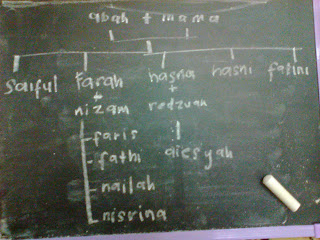 abah + mama
saiful farah hasna hasni fatini
+ +
nizam redzuan
faris
fathi aiesyah
nailah
nisrina